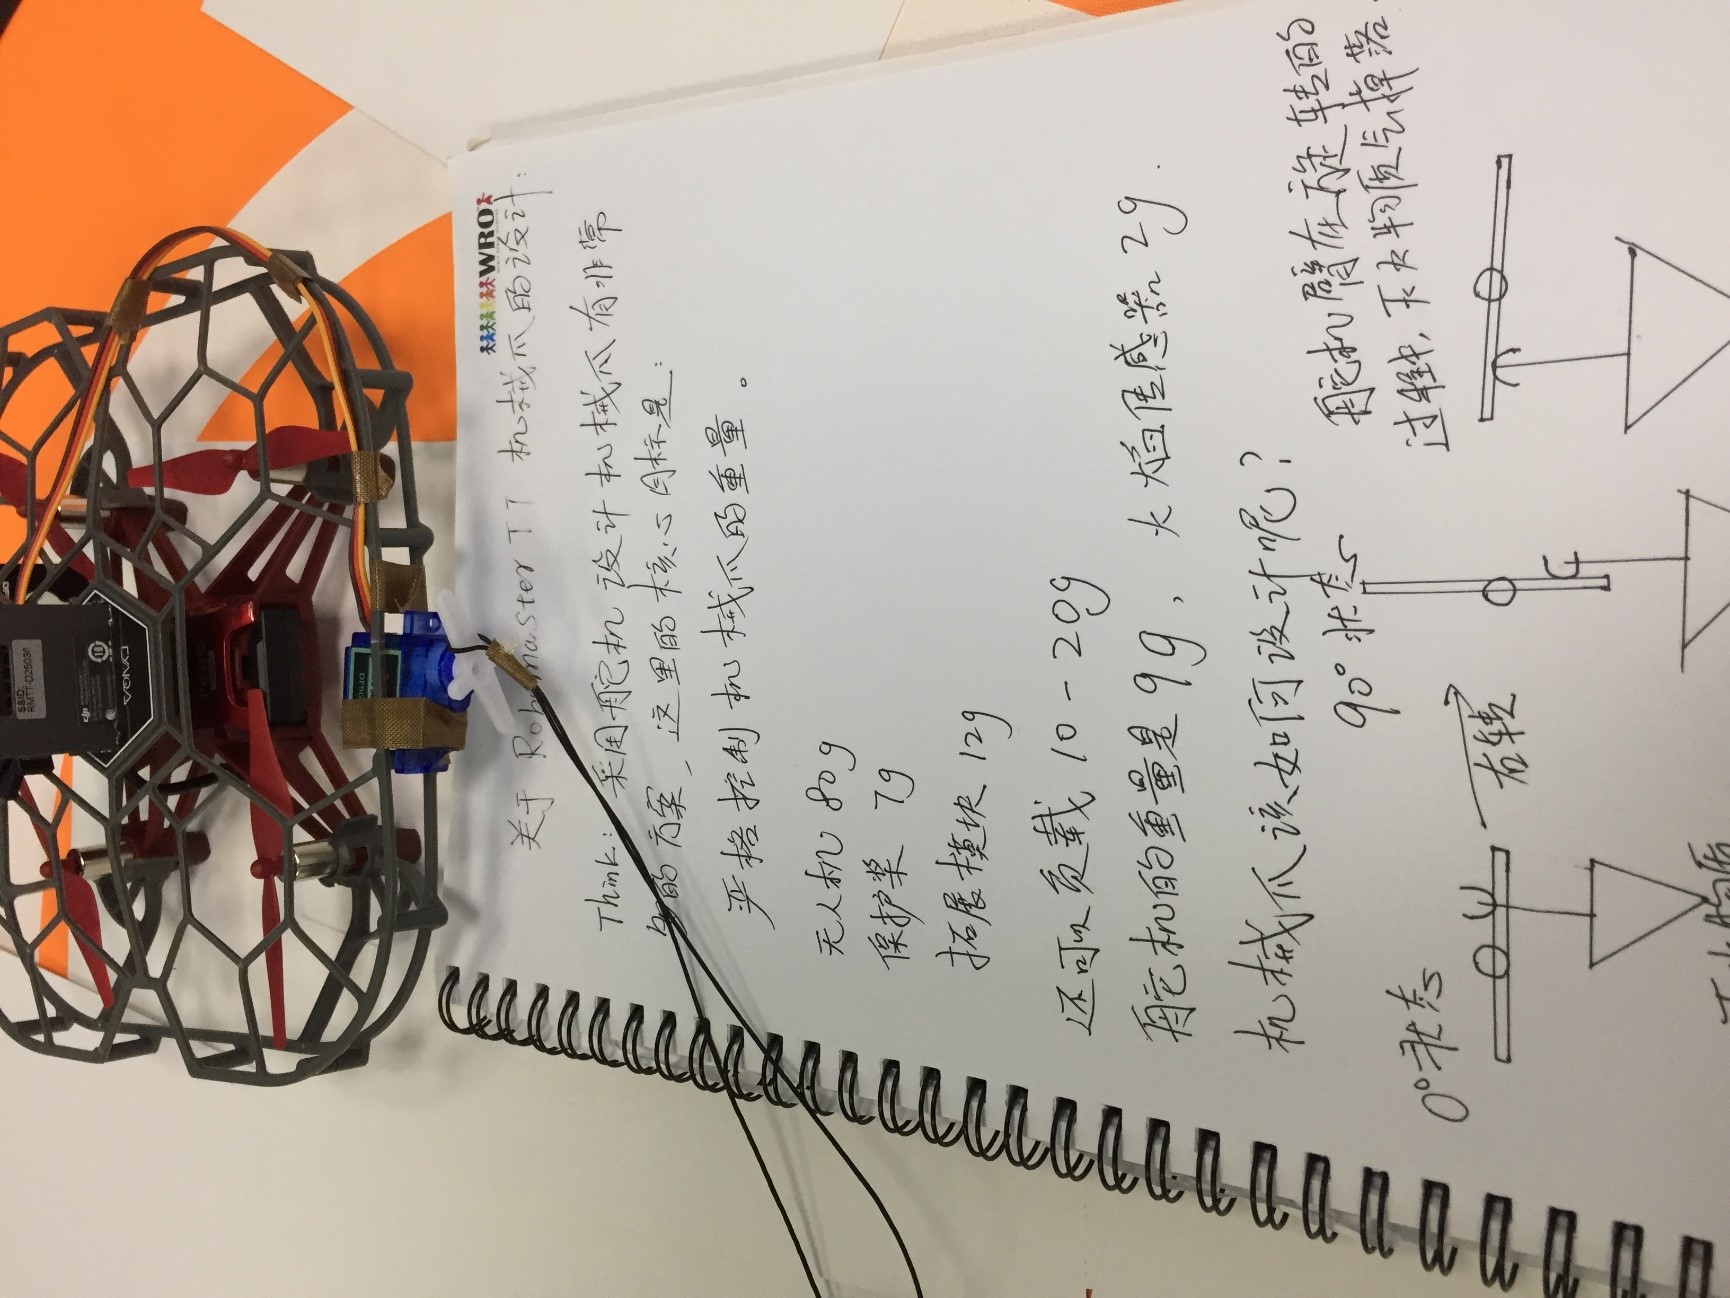 WRO
关于 RobomasterTT 机械爪的设计:
Think: 采用舵机设计机械爪有非常
的方案，这里的核心目标是:
严格控制机械爪的重量。
无人机 80g
保护桨 7g
拓展模块 12g
还可以负载 10-20g
舵机的重量是 9g, 火焰传感器 2g.
机械爪该如何设计呢?
0°状态
右转
90°状态
舵机臂在旋转的
过程中, 灭火物质会掉落.
灭火物质
SSID:
RMTT-D2603F
dji